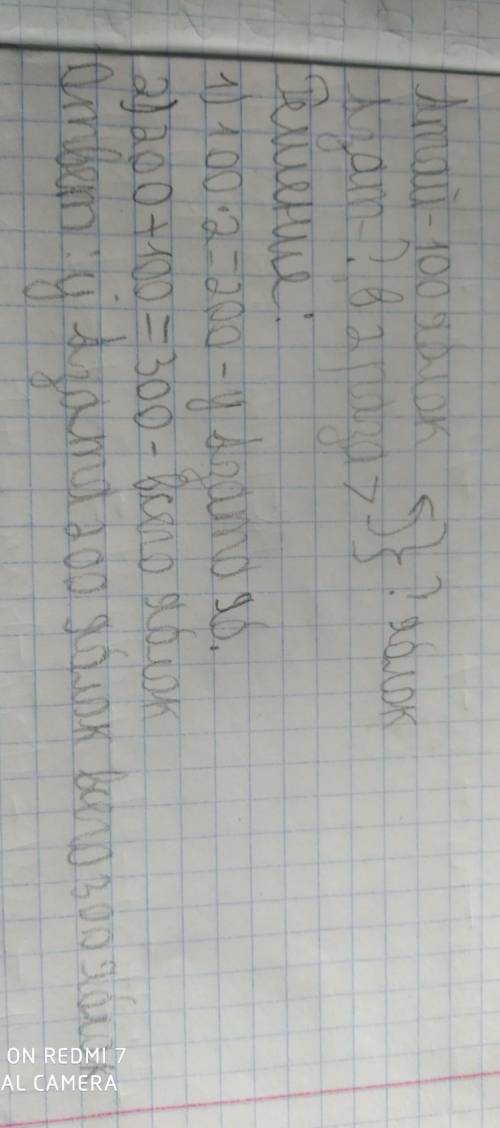 Алтай - 100 яблок
Азат - ?, в 2 раза > } ? яблок
Решение:
1) 100 · 2 = 200 - у Азата яб.
2) 200 + 100 = 300 - всего яблок
Ответ: у Азата 200 яблок всего 300 яблок
ON REDMI 7
AL CAMERA